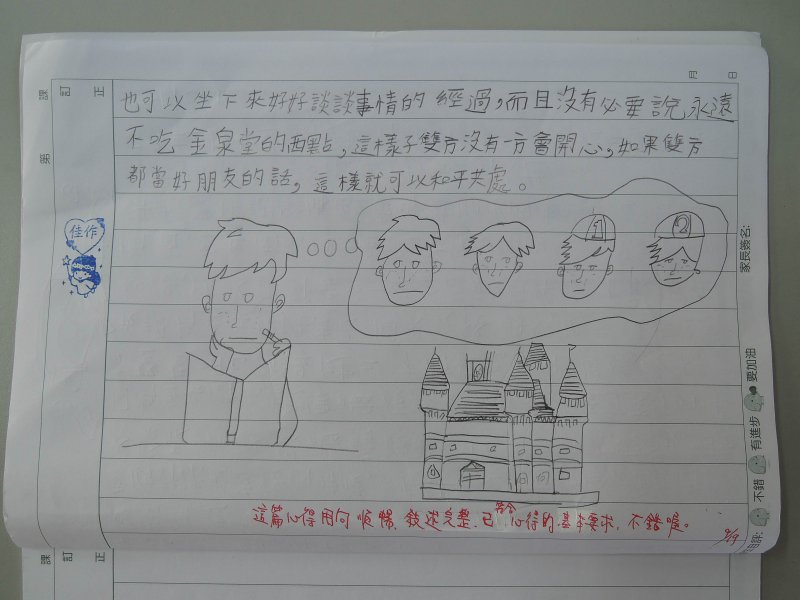 月 日
也可以坐下來好好談談事情的經過,而且沒有必要說永遠
不吃金泉堂的西點,這樣子雙方沒有一方會開心,如果雙方
都當好朋友的話,這樣就可以和平共處。
課 訂 正
第
佳作
1
2
家長簽名:
要加油
有進步
不錯
這篇心得用句順暢、敘述完整,已符合心得的基本要求,不錯喔。
2/19
課 訂 正